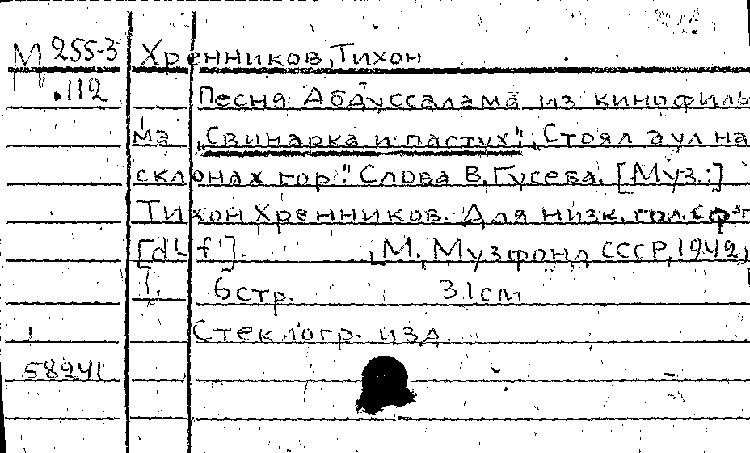 М 255-3 Хренников, Тихон
.112 Песня Абдуссалама из кинофиль
ма „Свинарка и пастух". „Стоял аул на
склонах гор". Слова В. Гусева. [Муз.:]
Тихон Хренников. Для низк. гол. с ф-п
М., Музфонд СССР, 1942,
6 стр. 31 см
Стеклогр. изд.
58241